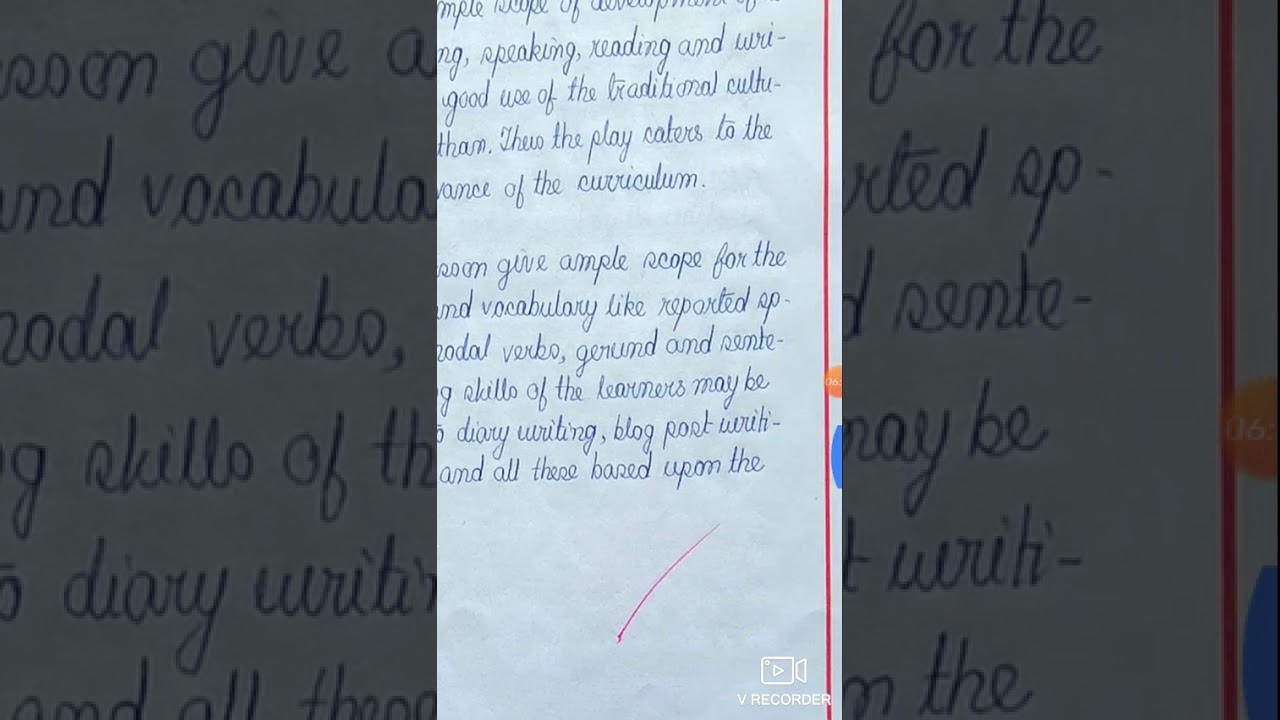 mple scope of development of
ng, speaking, reading and wri-
good use of the traditional cultu-
than. Thus the play caters to the
vance of the curriculum.
sson give ample scope for the
and vocabulary like reported sp-
modal verbs, gerund and sente-
g skills of the learners may be
diary writing, blog post writi-
and all these based upon the
V RECORDER